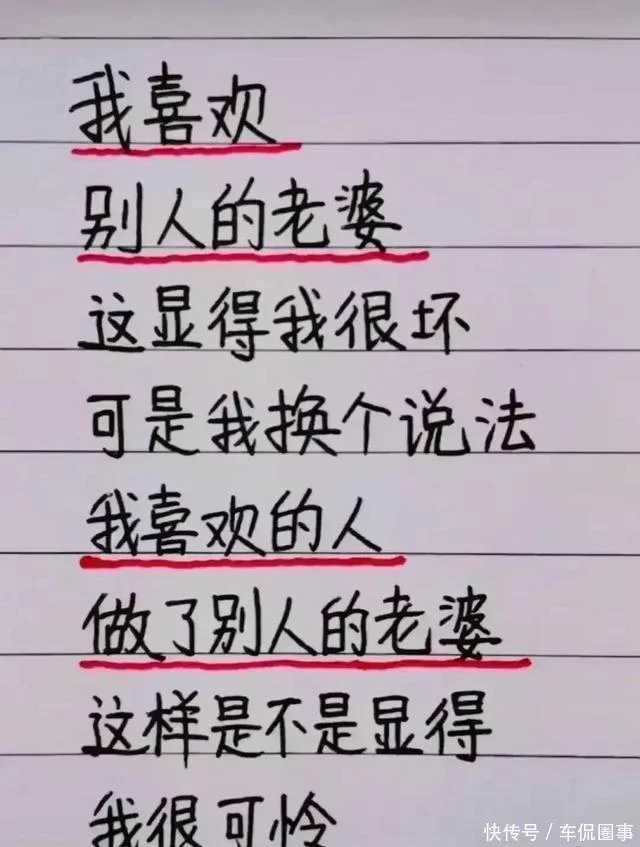 我喜欢
别人的老婆
这显得我很坏
可是我换个说法
我喜欢的人
做了别人的老婆
这样是不是显得
我很可怜
快传号／车侃圈事